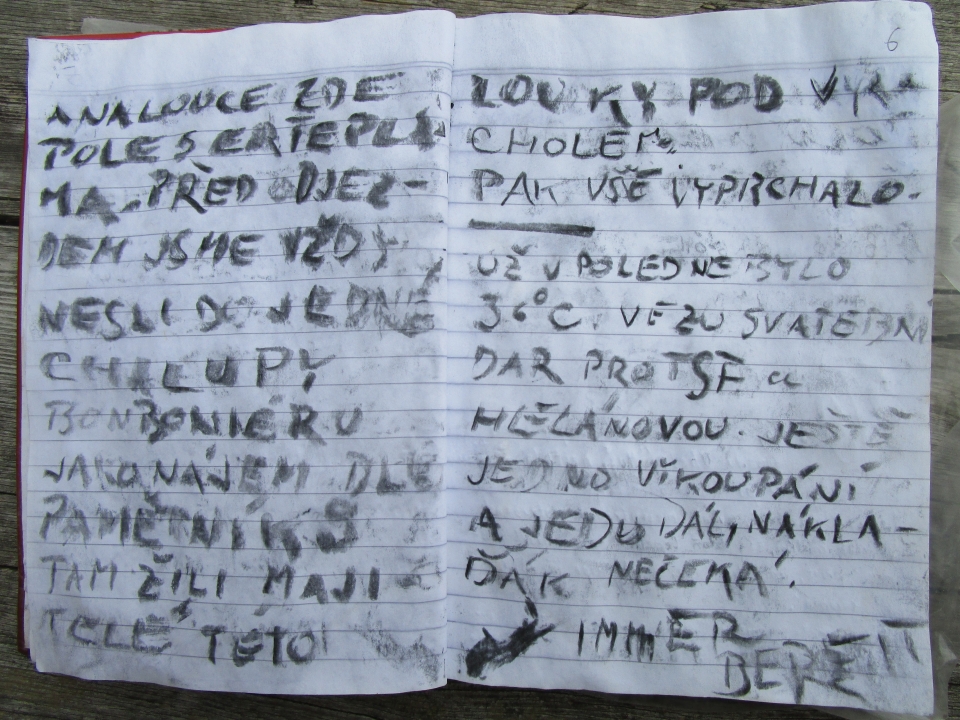 A NA LOUCE ZDE
POLE S ERTEPLA
MA. PŘED ODJEZ-
DEM JSME VŽDY
NESLI DO JEDNÉ
CHALUPY
BONBONIÉRU
JAKO NÁJEM DLE
PAMĚTNÍKŮ
TAM ŽILI MAJI-
TELÉ TÉTO
LOUKY POD VYRA
CHOLEM.
PAK VŠE VYPRCHALO.
UŽ V POLEDNE BYLO
36°C. VEZU SVATEBNÍ
DAR PRO
JEŠTĚ
JEDNO VYKOUPÁNÍ
A JEDU DÁL, NÁKLA-
ĎÁK NEČEKÁ!
IMMER
BEREIT
6